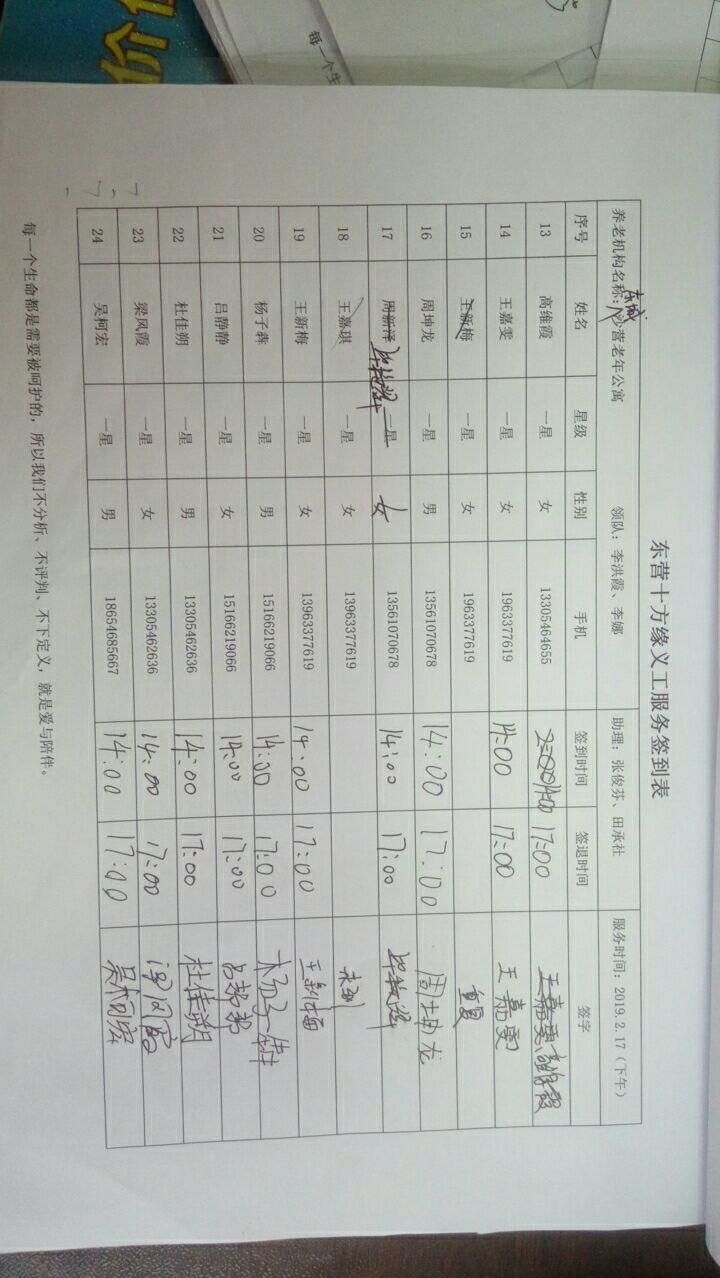 价
每一个生
东营十方缘义工服务签到表
养老机构名称：东城沙营老年公寓 领队：李洪霞、李娜 助理：张俊芬、田承社 服务时间：2019.2.17（下午）
序号 姓名 星级 性别 手机 签到时间 签退时间 签字
13 高维霞 一星 女 13305464655 14:00 17:00 王嘉雯、高维霞
14 王嘉雯 一星 女 1963377619 14:00 17:00 王嘉雯
15 王新梅 一星 女 1963377619 重复
16 周坤龙 一星 男 13561070678 14:00 17:00 周坤龙
17 周新泽 一星 女 13561070678 14:00 17:00
18 王嘉琪 一星 女 13963377619 未到
19 王新梅 一星 女 13963377619 14:00 17:00 王新梅
20 杨子犇 一星 男 15166219066 14:00 17:00 杨子犇
21 吕静静 一星 女 15166219066 14:00 17:00 吕静静
22 杜佳朔 一星 男 13305462636 14:00 17:00 杜佳朔
23 梁凤霞 一星 女 13305462636 14:00 17:00
24 吴柯宏 一星 男 18654685667 14:00 17:00 吴柯宏
每一个生命都是需要被呵护的，所以我们不分析、不评判、不下定义，就是爱与陪伴。